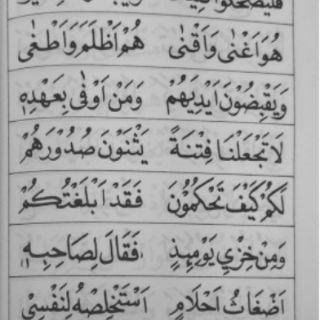 هُوَ اَغْنٰى وَاَقْنٰى هُمْ اَظْلَمَ وَاَطْغٰى
وَيَقْبِضُوْنَ اَيْدِيَهُمْ وَمَنْ اَوْفٰى بِعَهْدِهٖ
لَا تَجْعَلْنَا فِتْنَةً يَثْنُوْنَ صُدُوْرَهُمْ
لَكُمْ كَيْفَ تَحْكُمُوْنَ فَقَدْ اَبْلَغْتُكُمْ
وَمِنْ خِزْيِ يَوْمِئِذٍ فَقَالَ لِصَاحِبِهٖ
اَضْغَاثُ اَحْلَامٍ اَسْتَخْلِصْهُ لِنَفْسِيْ